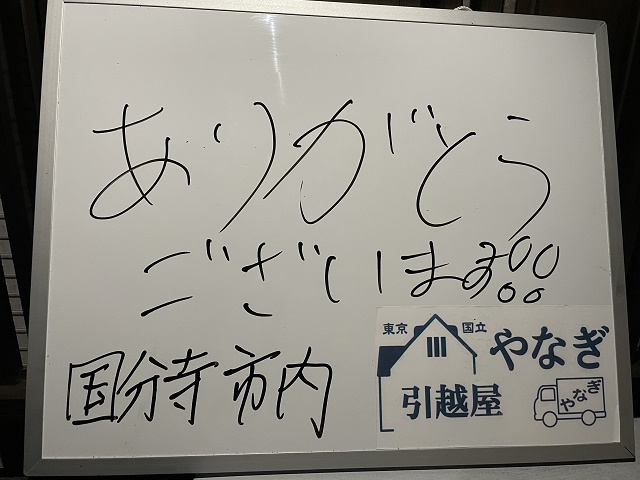 ありがとう
ございます!!
国分寺市内
東京 国立 やなぎ
引越屋
やなぎ